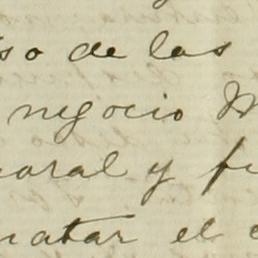 so de las
negocio M
oral y fu
atar el